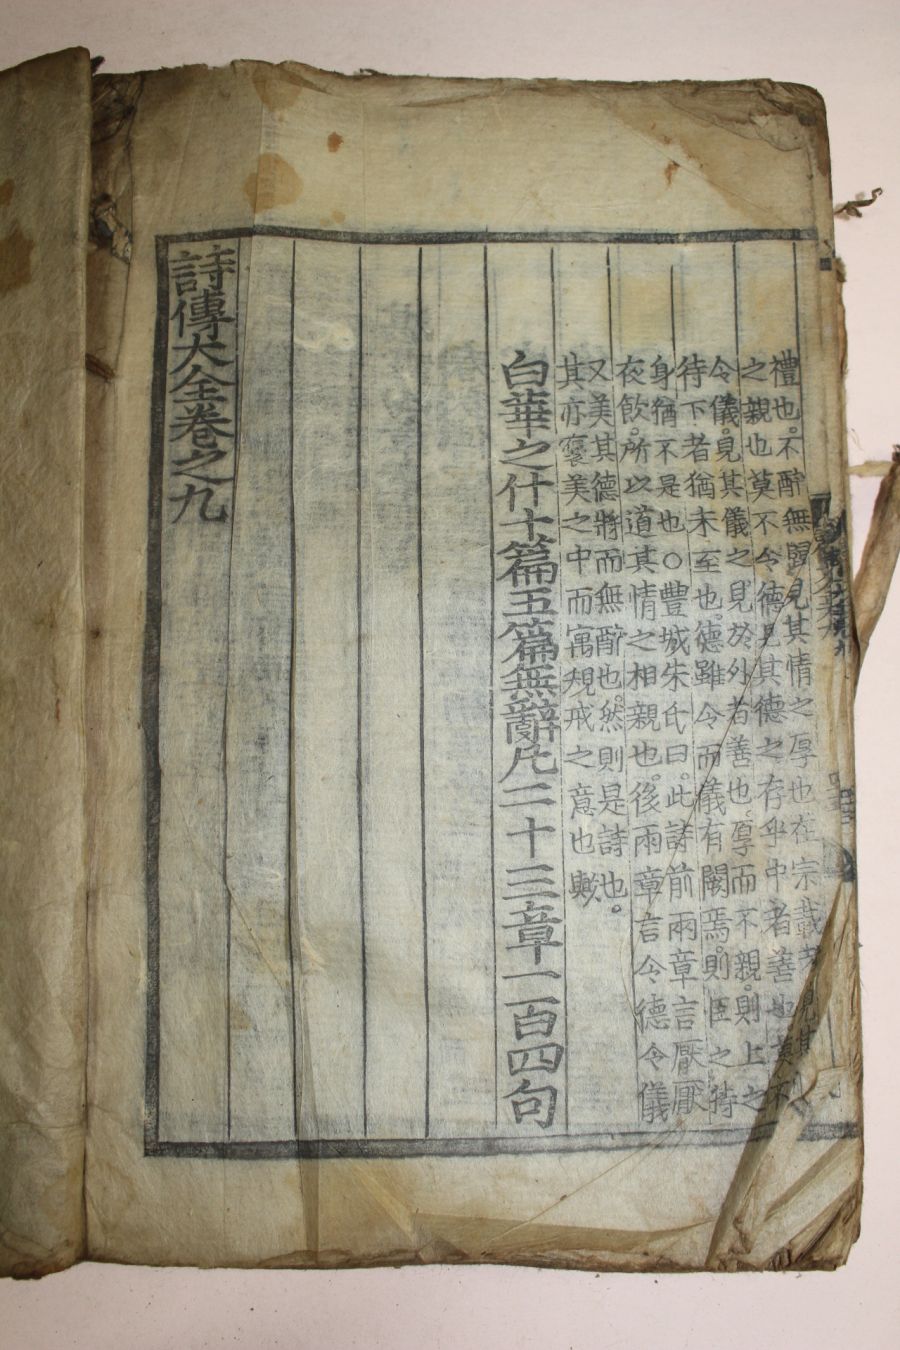 禮也。不酧無歸見其情之厚也在宗載考
之親也莫不令德見其德之存乎中者善也莫不
令儀。見其儀之見於外者善也。厚而不親。則上之
待下者猶未至也。德雖令而儀有闕焉。則臣之待
身猶不是也○豐城朱氏曰。此詩前兩章言厭厭
夜飮。所以道其情之相親也。後兩章言令德令儀
又美其德將而無酧也。然則是詩也。
其亦襃美之中而寓規戒之意也歟
白華之什十篇五篇無辭凡二十三章一百四句
詩傳大全卷之九